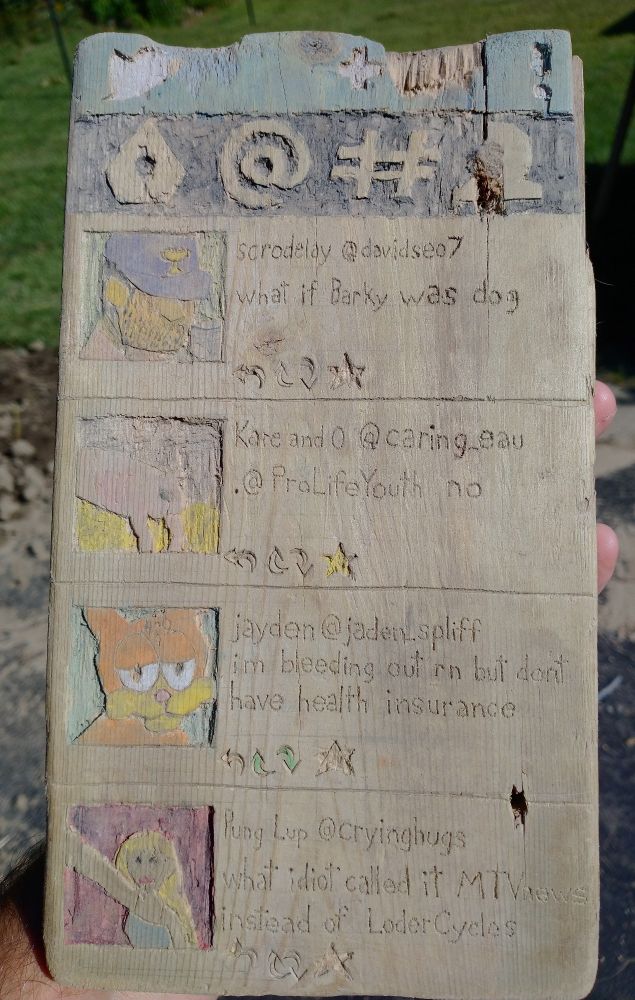 @ #
scrodelay @davidseo7
what if Barky was dog
Kare and O @caring_eau
.@ProLifeYouth no
jayden @jaden_spliff
im bleeding out rn but dont
have health insurance
Pung Lup @cryinghugs
what idiot called it MTVnews
instead of LoderCycles